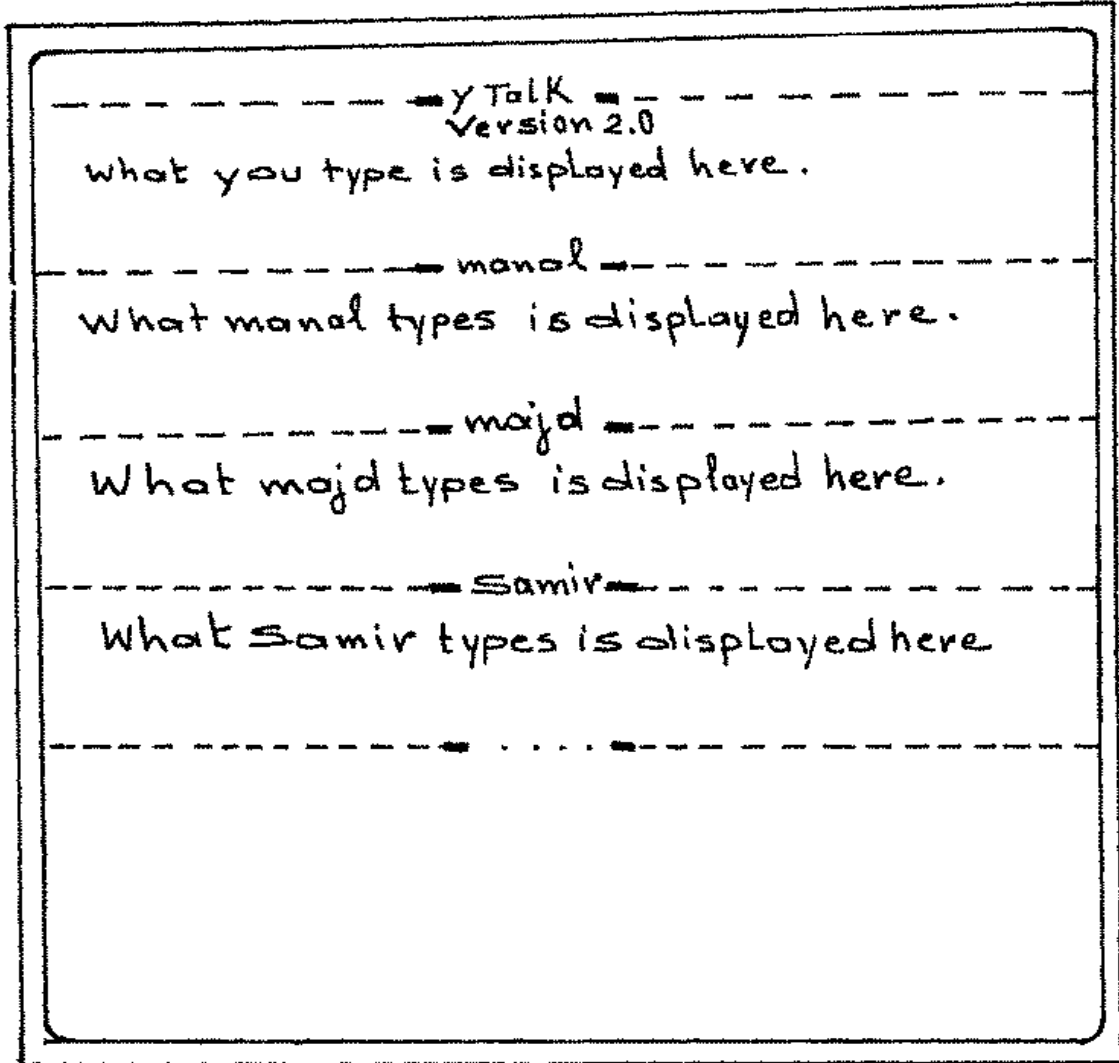 y Talk
Version 2.0
What you type is displayed here.
manal
What manal types is displayed here.
majd
What majd types is displayed here.
Samir
What Samir types is displayed here
. . . .